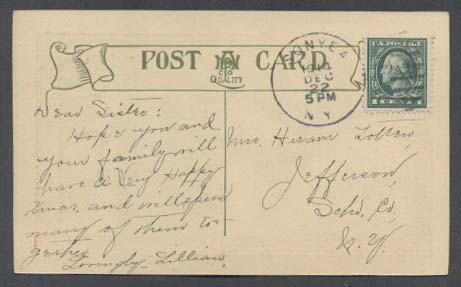 POST CARD
PNC CO
QUALITY
SONYEA
DEC
22
5 PM
N Y
U.S. POSTAGE
1 CENT 1
Dear Sister:
Hope you and
your family will
have a Very Happy
Xmas. and will spend
many of them to-
gether
Lovingly - Lillian.
Mrs. Hiram
Jefferson,
Scho, Co,
N. Y.